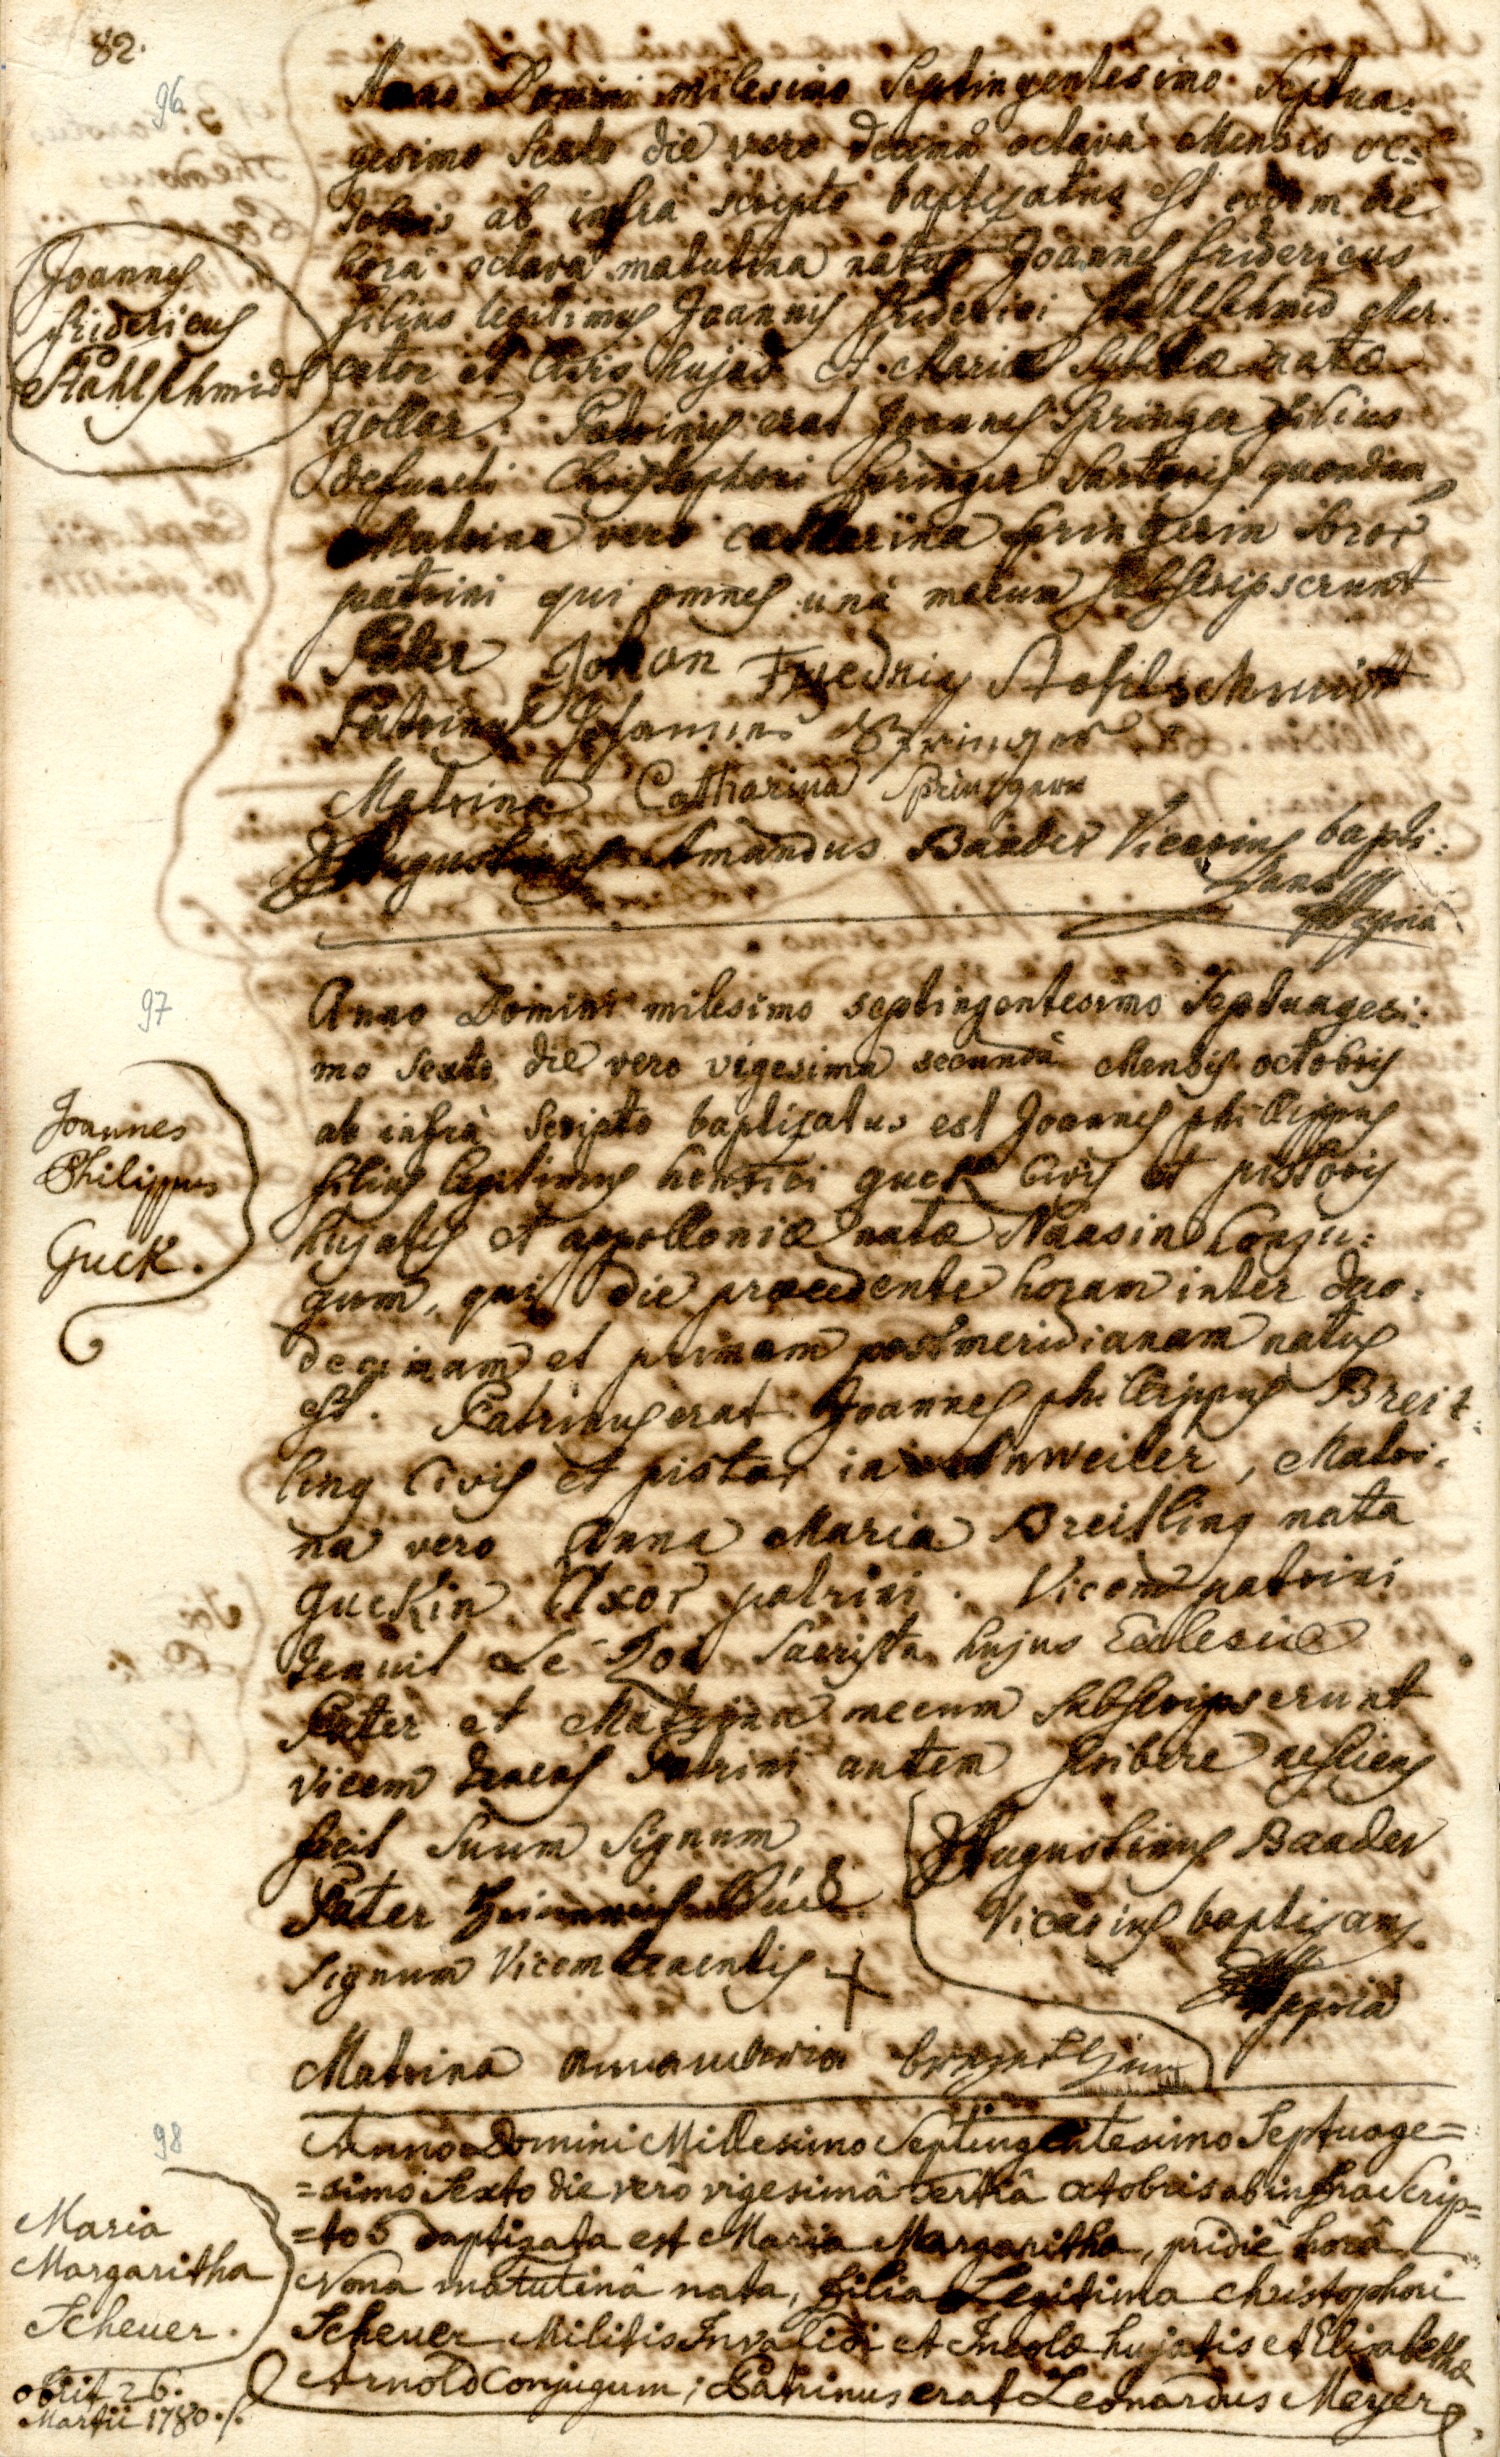 82.
96
Anno Domini milesimo Septingentesimo Septua:
gesimo Sexto die vero decimâ octavâ Mensis oc=
tobris ab infrà scripto baptizatus est eodem die
horâ octavâ matutina natus Joannes fridericus
filius legitimus Joannis friderici Stahlschmid Mer.
cator et Civis hujas et Mariæ Sybillæ natæ
gollar. Patrinus erat Joannes Springer filius
defuncti Christophori Springer Sartoris quondam
Matrina vero Catharina Springerin soror
patrini qui omnes unà mecum subscripserunt
Joannes
fridericus
Stahlschmid
Pater Johan Friedrich Stahlschmidt
Patrinus Johannes Springer
Matrina Catharina Springern
Augustinus Amandus Baader Vicarius bapti:
zans
mppria
97
Anno Domini milesimo septingentesimo Septuagesi:
mo Sexto die vero vigesima secundâ Mensis octobris
ab infrà Scripto baptizatus est Joannes philippus
filius legitimus henrici guck Civis et pistoris
hujatis et appolloniæ natæ Naasin Conju:
gum, qui die præcedente horam inter duo:
decimam et primam postmeridianam natus
est. Patrinus erat Joannes philippus Breit:
ling Civis et pistor in Anweiler, Matri:
na vero Anna Maria Breitling nata
guckin Uxor patrini. Vicem patrini
tenuit Le Roi Sacrista hujus Ecclesiæ
Pater et Matrina mecum subscripserunt
vicem tenens Patrini autem scribere nesciens
fecit Suum Signum
Joannes
Philippus
Guck.
Pater Heinrich Guck
Signum Vicem tenentis +
Augustinus Baader
Vicarius baptizans
mppria
Matrina annamaria
98
Anno Domini Millesimo Septingentesimo Septuage=
=simo Sexto die verò vigesimâ Tertiâ octobris ab infra Scrip=
=to baptizata est Maria Margaritha, pridiè horâ
Nonâ matutinâ nata, filia Legitima Christophori
Scheuer Militis Invalidi et Incolæ hujatis et Elisabethæ
Arnold Conjugum; Patrinus erat Leonardus Meyer
Maria
Margaritha
Scheuer.
obiit 26.
Martii 1780.